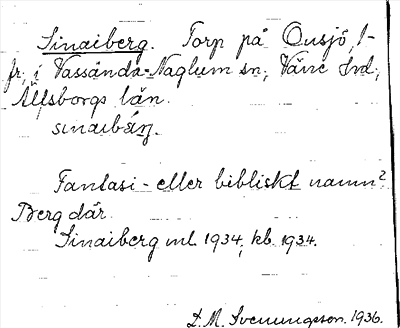 Sinaiberg. Torp på Onsjö, 1-
fr, i Vassända-Naglum sn, Väne hd,
Älfsborgs län.
sinaibárj.
Fantasi- eller bibliskt namn?
Berg där.
Sinaiberg ml. 1934, kb. 1934.
D.M. Svenungsson. 1936.